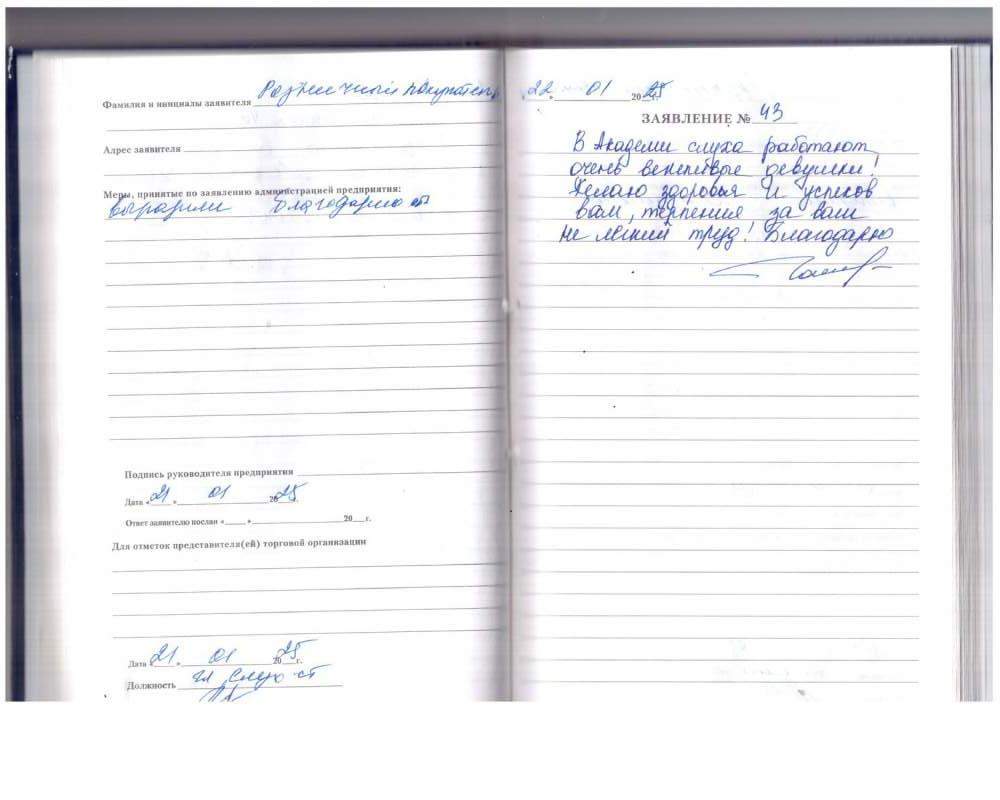 Фамилия и инициалы заявителя Розничный покупатель
Адрес заявителя
Меры, принятые по заявлению администрацией предприятия:
выразили благодарность
Подпись руководителя предприятия
Дата « 21 » 01 20 25 г.
Ответ заявителю послан « » 20 г.
Для отметок представителя(ей) торговой организации
Дата « 21 » 01 20 25 г.
Должность
« 22 » 01 20 25 г.
ЗАЯВЛЕНИЕ № 43
В Академи слуха работают
очень вежливые девушки!
Желаю здоровья и успехов
вам, терпения за ваш
не лёгкий труд! Благодарю